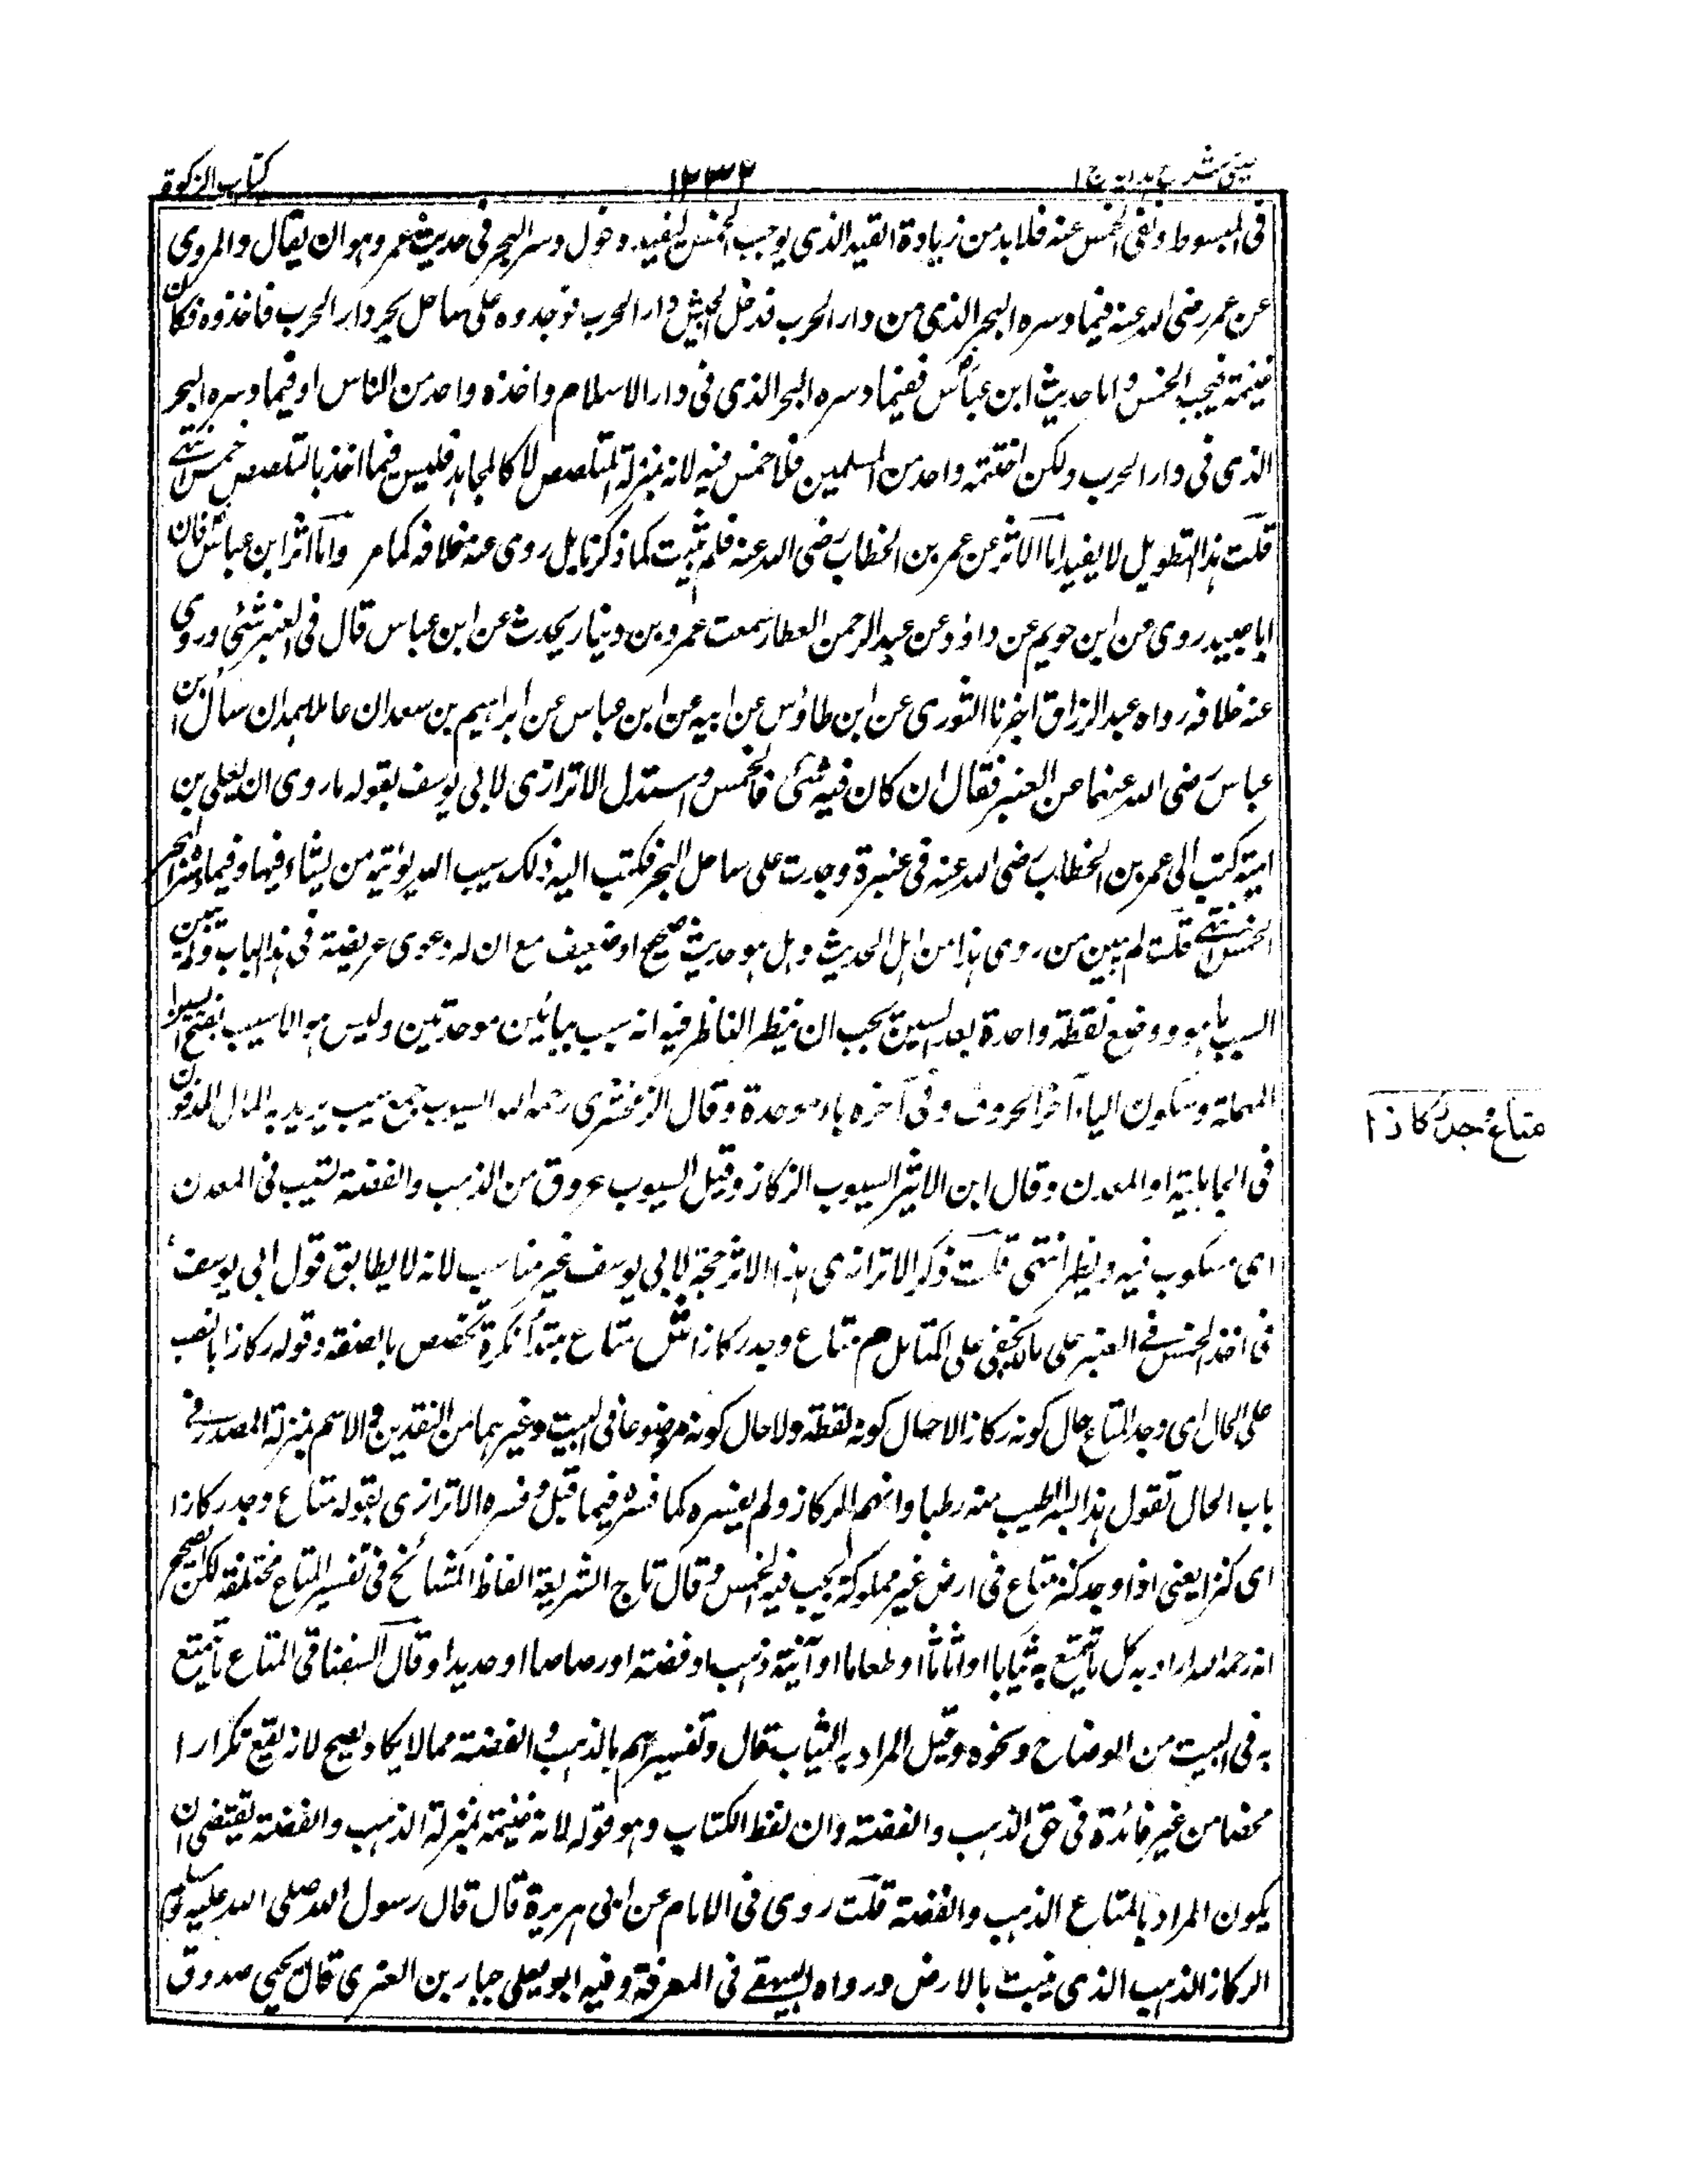 عینی شرح ہدایہ ج ۱
۱۲۳۲
کتاب الزکوة
فی المبسوط ونفی الخمس عنه فلا بد من زیادة القید الذی یوجب الخمس لیفید دخول دسر البحر فی حدیث عمر وهو ان یقال والمروی
عن عمر رضی الله عنه فیما دسره البحر الذی من دار الحرب فدخل الجیش دار الحرب فوجدوه علی ساحل بحر دار الحرب فاخذوه فکان
غنیمة فیجب الخمس واما حدیث ابن عباس ففیما دسره البحر الذی فی دار الاسلام واخذه واحد من الناس او فیما دسره البحر
الذی فی دار الحرب ولکن اخذته واحد من المسلمین فلا خمس فیه لانه بمنزلة المتلصص لا کالمجاهد فلیس فیما اخذ بالتلصص خمس انتهی
قلت هذا التطویل لا یفید اما الاثر عن عمر بن الخطاب رضی الله عنه فلم یثبت کما ذکرنا بل روی عنه خلافه کما مر واما اثر ابن عباس فان
ابا عبید روی من ابن جویم عن داؤد عن عبد الرحمن العطار سمعت عمرو بن دینار یحدث عن ابن عباس قال فی العنبر شئی وروی
عنه خلافه رواه عبد الرزاق اخبرنا الثوری عن ابن طاؤس عن ابیه عن ابن عباس عن ابراهیم بن سعد ان عاملا بعدن سأل ابن
عباس رضی الله عنهما عن العنبر فقال ان کان فیه شئ فالخمس واستدل الاترازی لابی یوسف بقوله ما روی ان یعلی بن
امیة کتب الی عمر بن الخطاب رضی الله عنه فی عنبرة وجدت علی ساحل البحر فکتب الیه ذلک سیب الله یؤتیه من یشاء فیها وفیما دسره البحر
الخمس انتهی قلت لم یبین من روی هذا من اهل الحدیث وهل هو حدیث صحیح او ضعیف مع ان له دعوی عریضة فی هذا الباب ولم یبین
السیب ما هو ووضع نقطة واحدة بعد السین یحسب ان ینظر الناظر فیه انه سبب ببائین موحدتین ولیس هو الا سیب بفتح السین
المهملة وسکون الیاء آخر الحروف وفی آخره باء موحدة وقال الزمخشری رحمه الله السیوب جمع سیب یرید به المال المدفون
فی الجاهلیة او المعدن وقال ابن الاثیر السیوب الرکاز وقیل السیوب عروق من الذهب والفضة تسیب فی المعدن
ای مسکوب فیه ویظهر انتهی قلت ذکر الاترازی هذا الاثر حجة لابی یوسف غیر مناسب لانه لا یطابق قول ابی یوسف
فی اخذ الخمس فی العنبر علی ما لا یخفی علی المتامل م متاع وجد رکازا ش متاع مبتدأ نکرة تخصص بالصفة وقوله رکازا بالنصب
علی الحال ای وجد المتاع حال کونه رکازا لا حال کونه لقطة ولا حال کونه موضوعا فی البیت وغیرهما من النقدین والاسم بمنزلة المصدر فی
باب الحال تقول هذا البسر اطیب منه رطبا وابهم الرکاز ولم یفسره کما فسره فیما قبل وفسره الاترازی بقوله متاع وجد رکازا
ای کنزا یعنی اذا وجد کنز متاع فی ارض غیر مملوکة یجب فیه الخمس وقال تاج الشریعة الفاظ المشائخ فی تفسیر المتاع مختلفة لکن الصحیح
انه رحمه الله اراد به کل ما یتمتع به ثیابا او اثاثا او طعاما او آنیة ذهب او فضة او رصاصا او حدیدا وقال السغناقی المتاع ما یتمتع
به فی البیت من الاوضاح ونحوه وقیل المراد به الثیاب قال وتفسیرهم بالذهب والفضة مما لا یکاد یصح لانه یقع تکرارا
محضا من غیر فائدة فی حق الذهب والفضة وان لفظ الکتاب وهو قوله لانه غنیمة بمنزلة الذهب والفضة یقتضی ان
یکون المراد بالمتاع الذهب والفضة قلت روی فی الامام عن ابی هریرة قال قال رسول الله صلی الله علیه وسلم
الرکاز الذهب الذی ینبت بالارض ورواه البیهقی فی المعرفة وفیه ابو یعلی حبار بن العنزی قال یحیی صدوق
متاع وجد رکازا